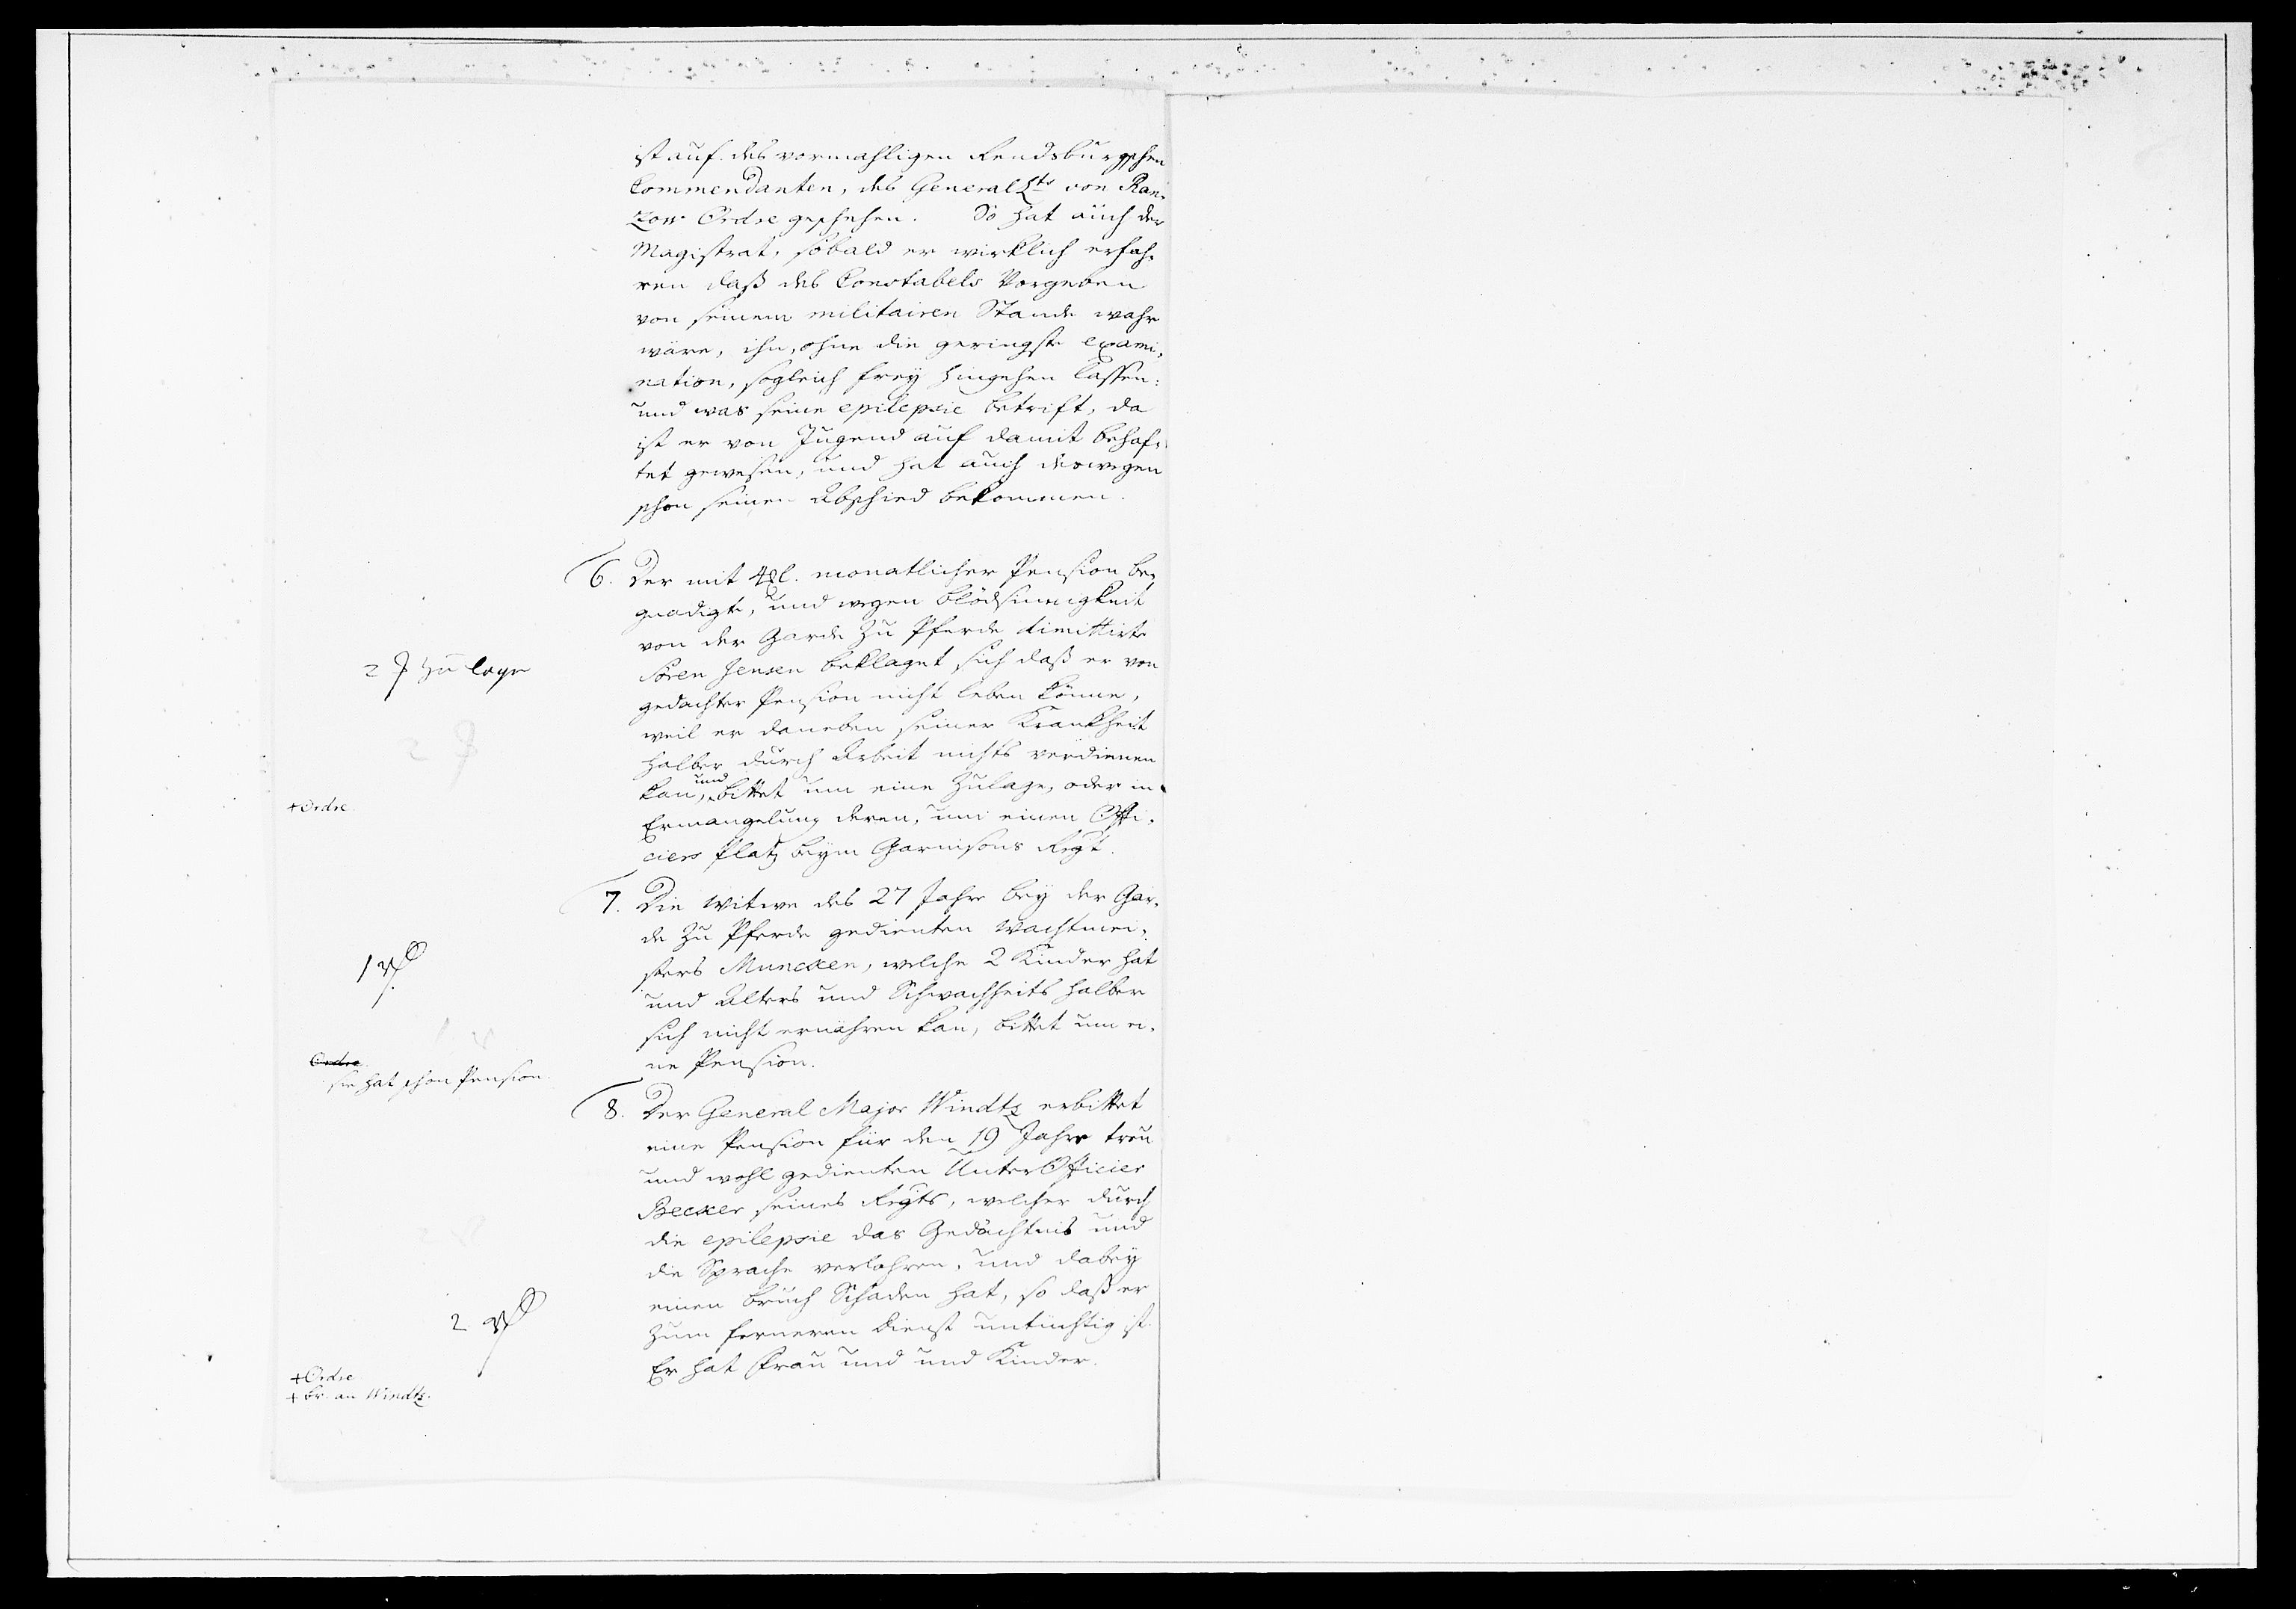 ist auf des vormahligen Rendsburgschen
Commendanten, des General Lts von Ran-
zow Ordre geschehen. So hat auch der
Magistrat, sobald er wircklich erfah-
ren daß des Constabels Vorgeben
von seinem militairen Stande wahr
wäre, ihn, ohne die geringste exami-
nation, sogleich frey hingehen lassen:
und was seine epilepsie betrift, da
ist er von Jugend auf damit behaf-
tet gewesen, und hat auch deswegen
schon seinen Abschied bekommen.
6. Der mit 4 monatlicher Pension be-
gnadigte, und wegen Blödsinnigkeit
von der Garde zu Pferde dimittirte
Sören Jensen beklaget sich daß er von
gedachter Pension nicht leben könne,
weil er daneben seiner Kranckheit
halber durch Arbeit nichts verdienen
kan, und bittet um eine Zulage, oder in
Ermangelung deren, um einen Offi-
ciers Platz beym Garnisons Regt.
2 Zulage
+ Ordre
7. Die Witwe des 27 Jahr bey der Gar-
de zu Pferde gedienten Wachtmei-
sters Muncken, welche 2 Kinder hat
und Alters und Schwachheits halber
sich nicht ernähren kan, bittet um ei-
ne Pension.
1
Ordre
sie hat schon Pension.
8. Der General Major Windtz erbittet
eine Pension für den 19 Jahr treu
und wohl gedienten Unter Officier
Becker seines Regts, welcher durch
die epilepsie das Gedächtnis und
die Sprache verlohren, und dabey
einen Bruch Schaden hat, so daß er
zum ferneren Dienst untüchtig ist.
Er hat Frau und und Kinder.
2
+ Ordre
+ Br. an Windtz.